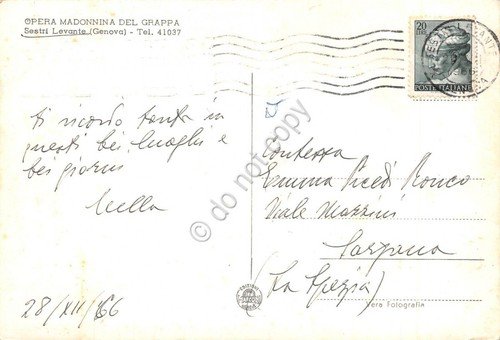 OPERA MADONNINA DEL GRAPPA
Sestri Levante (Genova) - Tel. 41037
20
LIRE
POSTE ITALIANE
SESTRI LEVANTE
ti ricordo tanto in
questi bei luoghi e
bei giorni
Lella
28/XII/66
Contessa
Emma Picedi Ronco
Viale Mazzini
Sarzana
(La Spezia)
Vera Fotografia
© do not copy